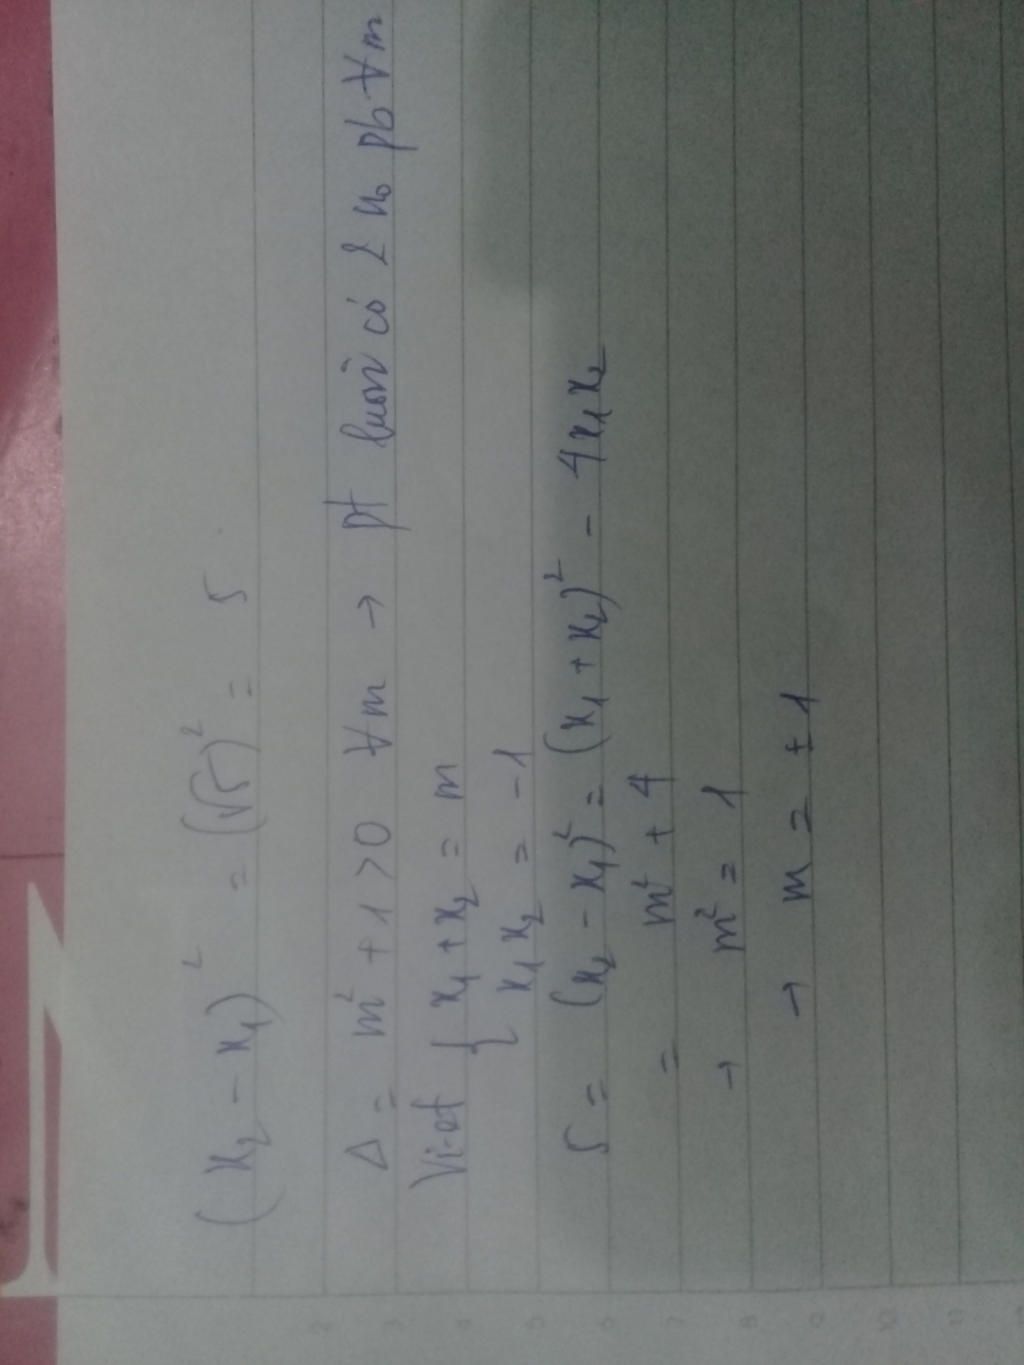 (x₂ - x₁)² = (√5)² = 5
Δ = m² + 1 > 0 ∀m → pt luôn có 2 no pb ∀m
Vi-et { x₁ + x₂ = m
x₁x₂ = -1
5 = (x₂ - x₁)² = (x₁ + x₂)² - 4x₁x₂
= m² + 4
→ m² = 1
→ m = ±1
2
3
4
5
6
7
8
9
10
11